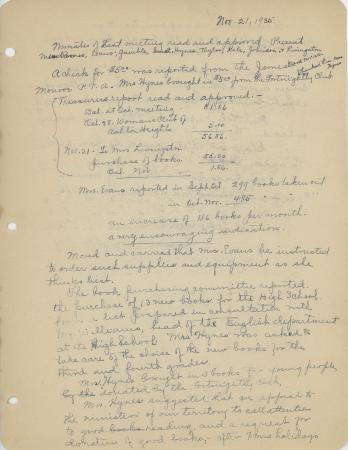 Nov. 21, 1935
Minutes of last meeting read and approved. Present
Evans, Gamble, Hynes, Taylor, Johnson & Livingston
A check for $5.00 was reported from the James
Monroe P.T.A. Mrs Hynes brought in $5.00 from the Fortnightly Club
Treasurers report read and approved. -
Bal. at last meeting
Oct. 28. Womans Club of
Ashton Heights 5.00
56.86
Nov. 21 - To Mrs Livingston
purchase of books 55.00
Bal. Nov. 1.86
Mrs. Evans reported in Sept. 299 books taken out
in Oct. Nov. 485
an increase of 186 books per month.
a very encouraging indication.
Moved and carried that Mrs. Evans be instructed
to order such supplies and equipment as she
thinks best.
The book purchasing committee reported
the purchase of 13 new books for the High School
from a list prepared in consultation with
Williams, head of the English department
at the High School. Mrs Hynes was asked to
take care of the choice of the new books for the
third and fourth grades.
Mrs. Hynes brought in 6 books for young people
donated by the Fortnightly Club.
Mrs. Hynes suggested that we appeal to
the ministers of our territory to call attention
to good books reading, and a request for
donation of good books, - after Xmas holidays